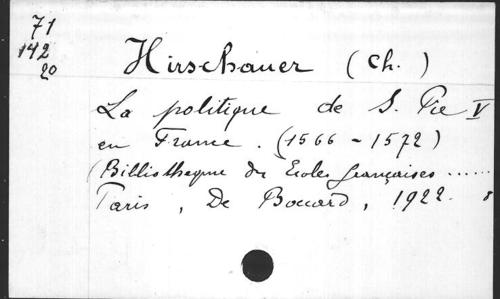 71
142
20
Hirschauer (Ch.)
La politique de S. Pie V
en France. (1566-1572)
(Billiotheque des Ecoles françaises ......
Paris, De Boccard, 1922. 8